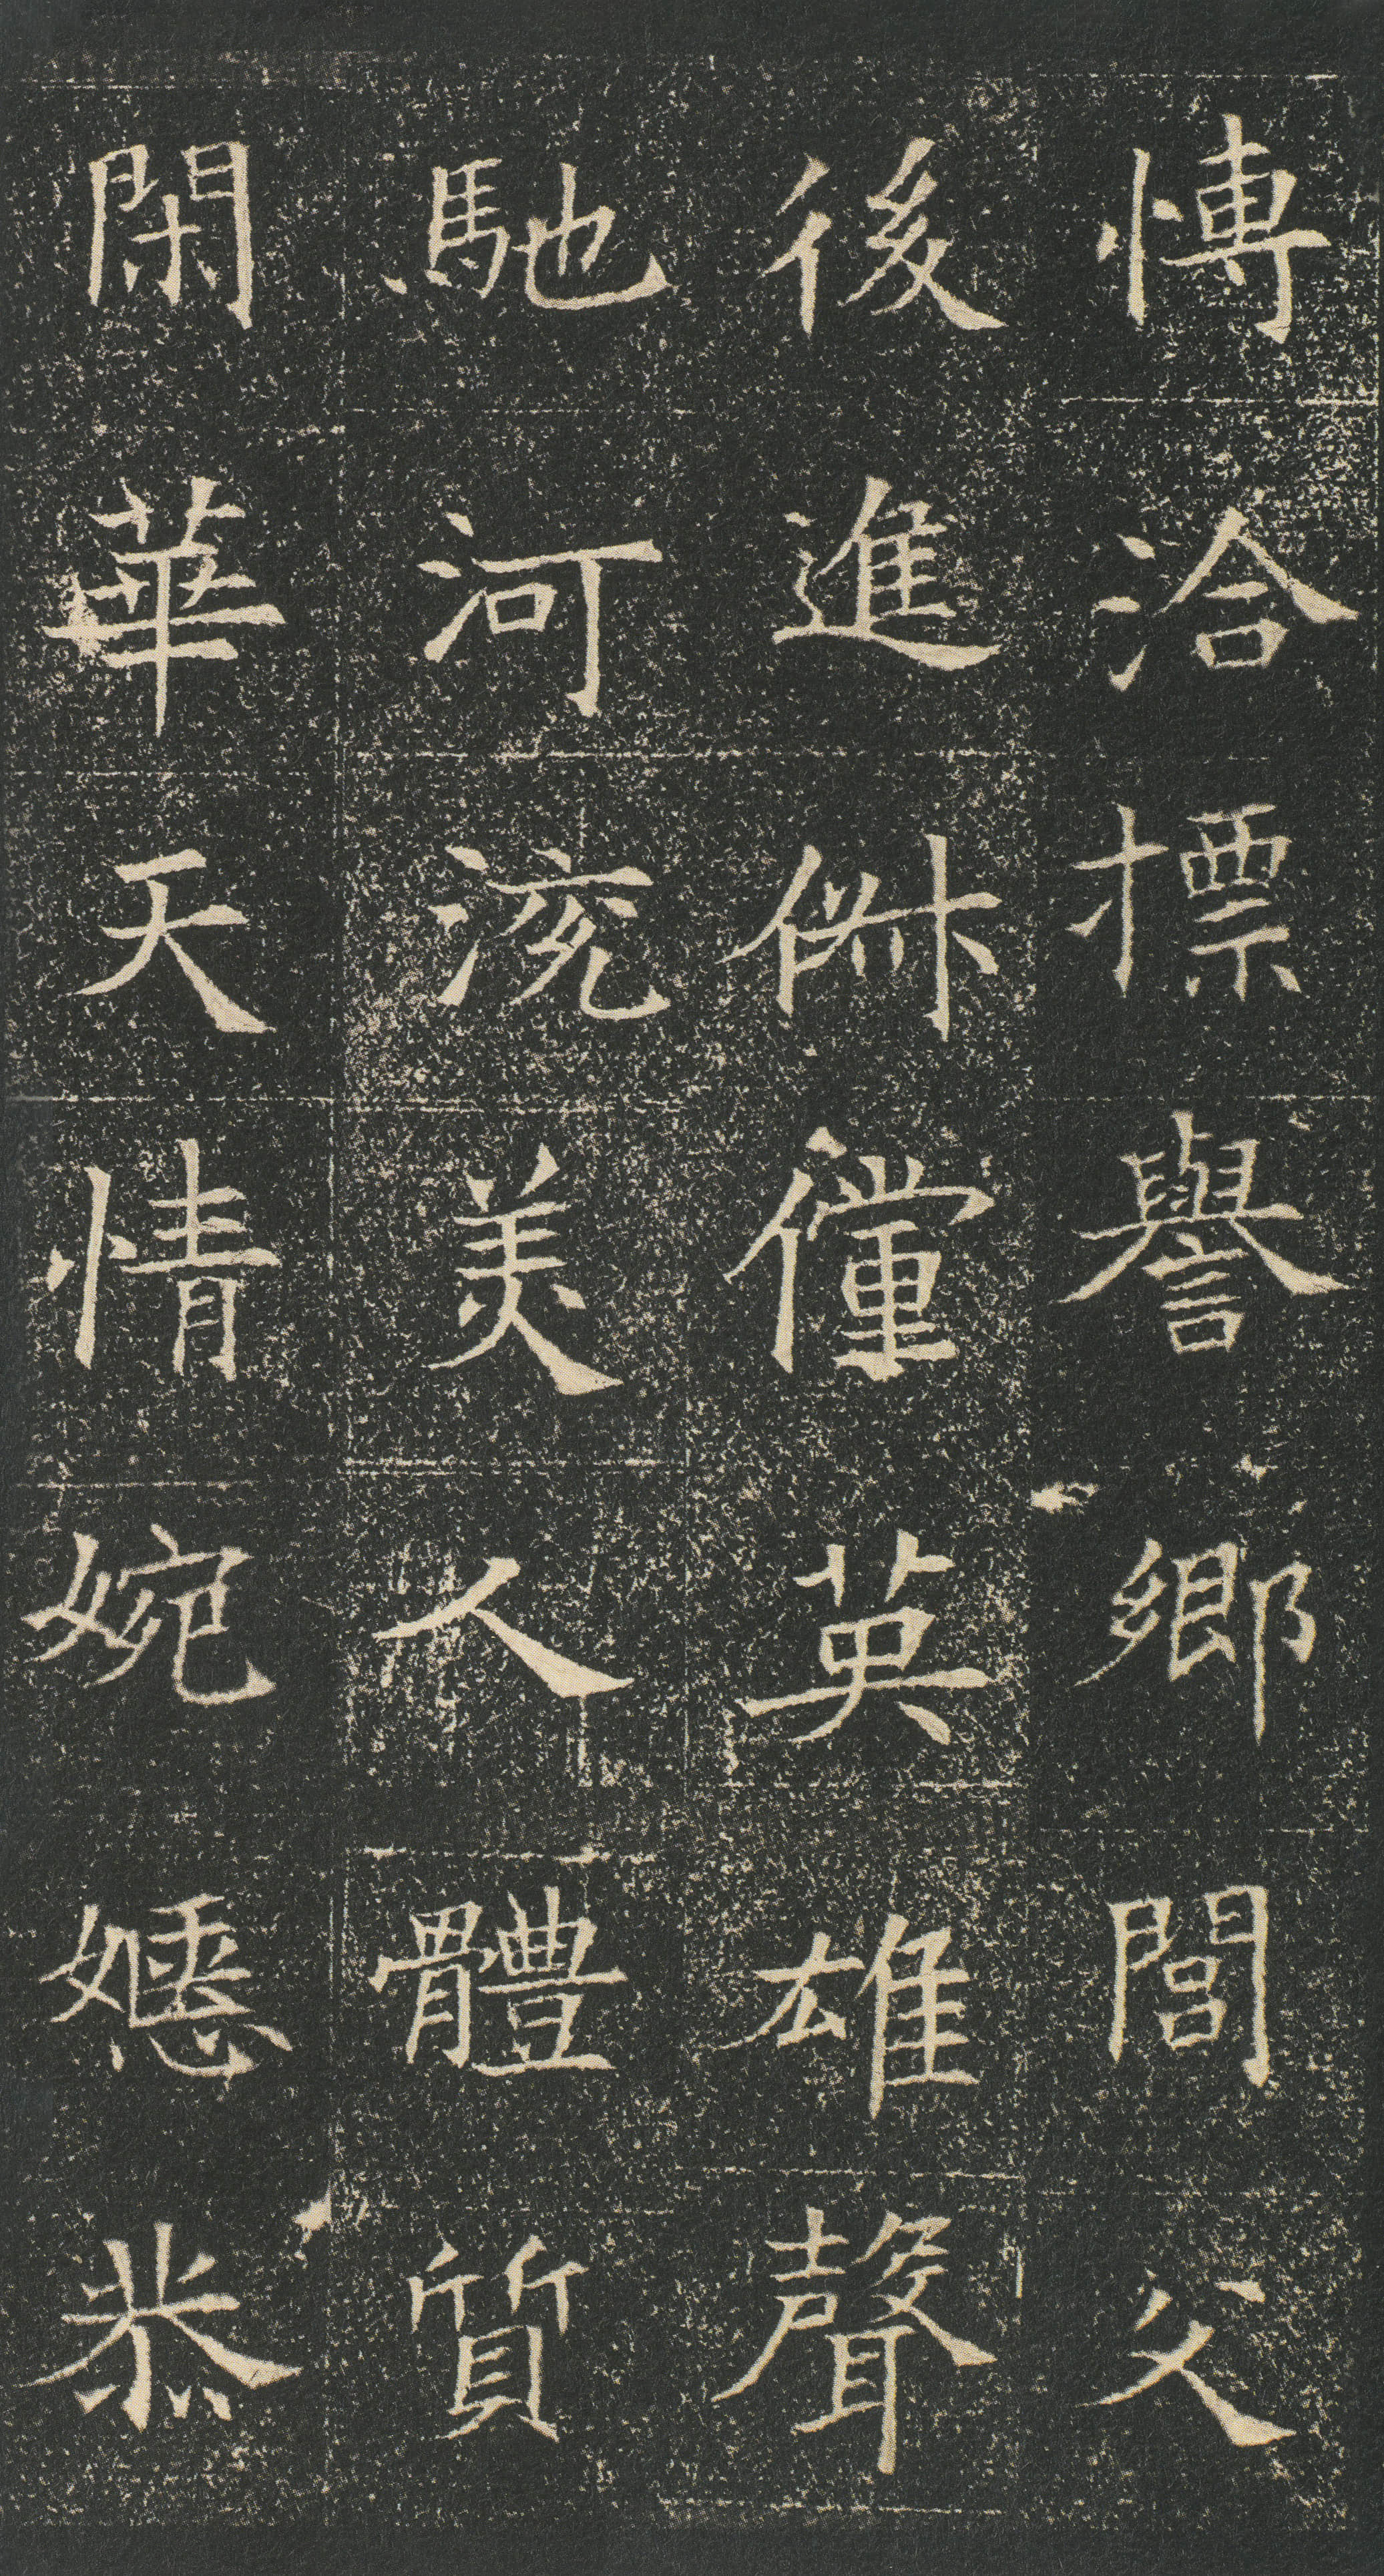 愽洽標譽鄉閭父
後進俶儻英雄聲
馳河渷美人體質
閑華天情婉嫕恭